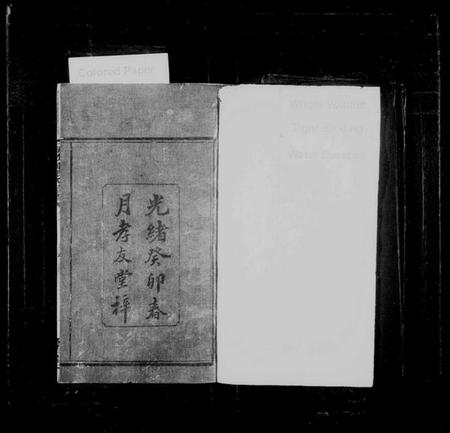 Colored Paper
Whole Volume
Tight Binding
Water Stained
光緒癸卯春
月孝友堂梓